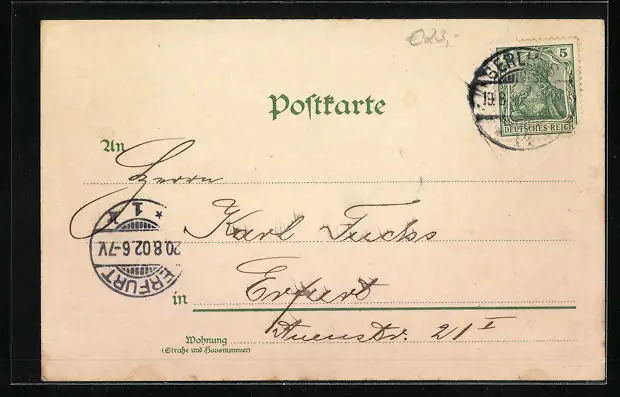 €23,-
5
BERLIN
19.8
DEUTSCHES REICH
Poſtkarte
An
Herrn
Karl Fuchs
* 1 k
20.8.02.6-7V.
ERFURT
in Erfurt
Auenstr. 21 I
Wohnung
(Straße und Hausnummer)